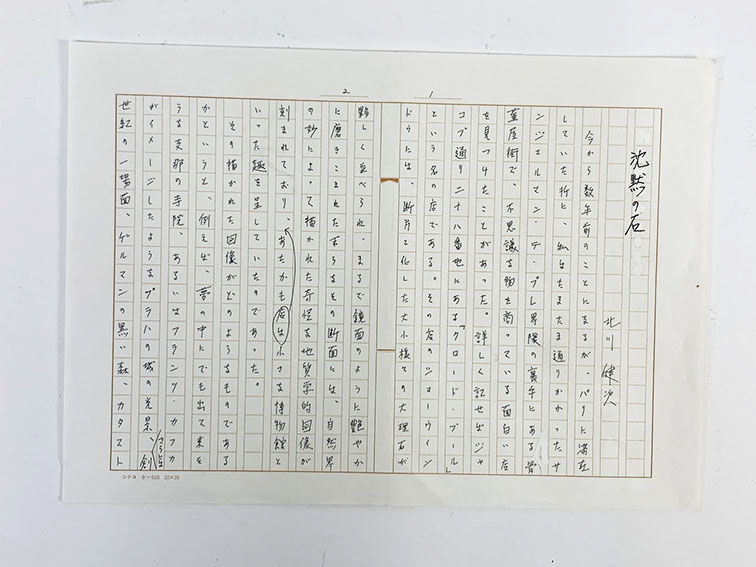 沈黙の石
北川健次
今から数年前のことになるが、パリに滞在
していた折に、私はたまたま通りかかったサ
ンジェルマン・デ・プレ界隈の裏手にある骨
董屋街で、不思議な物を商っている面白い店
を見つけたことがあった。詳しく記せばジャ
コブ通り二十八番地にある「クロード・ブール」
という名の店である。その店のショーウィン
ドウには、断片と化した大小様々の大理石が
夥しく並べられ、まるで鏡面のように艶やか
に磨きこまれたそれらの断面には、自然界
の妙によって描かれた奇怪な地質学的図像が
刻まれており、あたかも店は小さな博物館と
いった趣を呈していたのであった。
その描かれた図像がどのようなものである
かというと、例えば、夢の中にでも出て来そ
うな支那の寺院、あるいはフランツ・カフカ
がイメージしたようなプラハの城の光景、さらには創
世紀の一場面、ゲルマンの黒い森、カタスト
1
2
コクヨ ケー52D 20×20